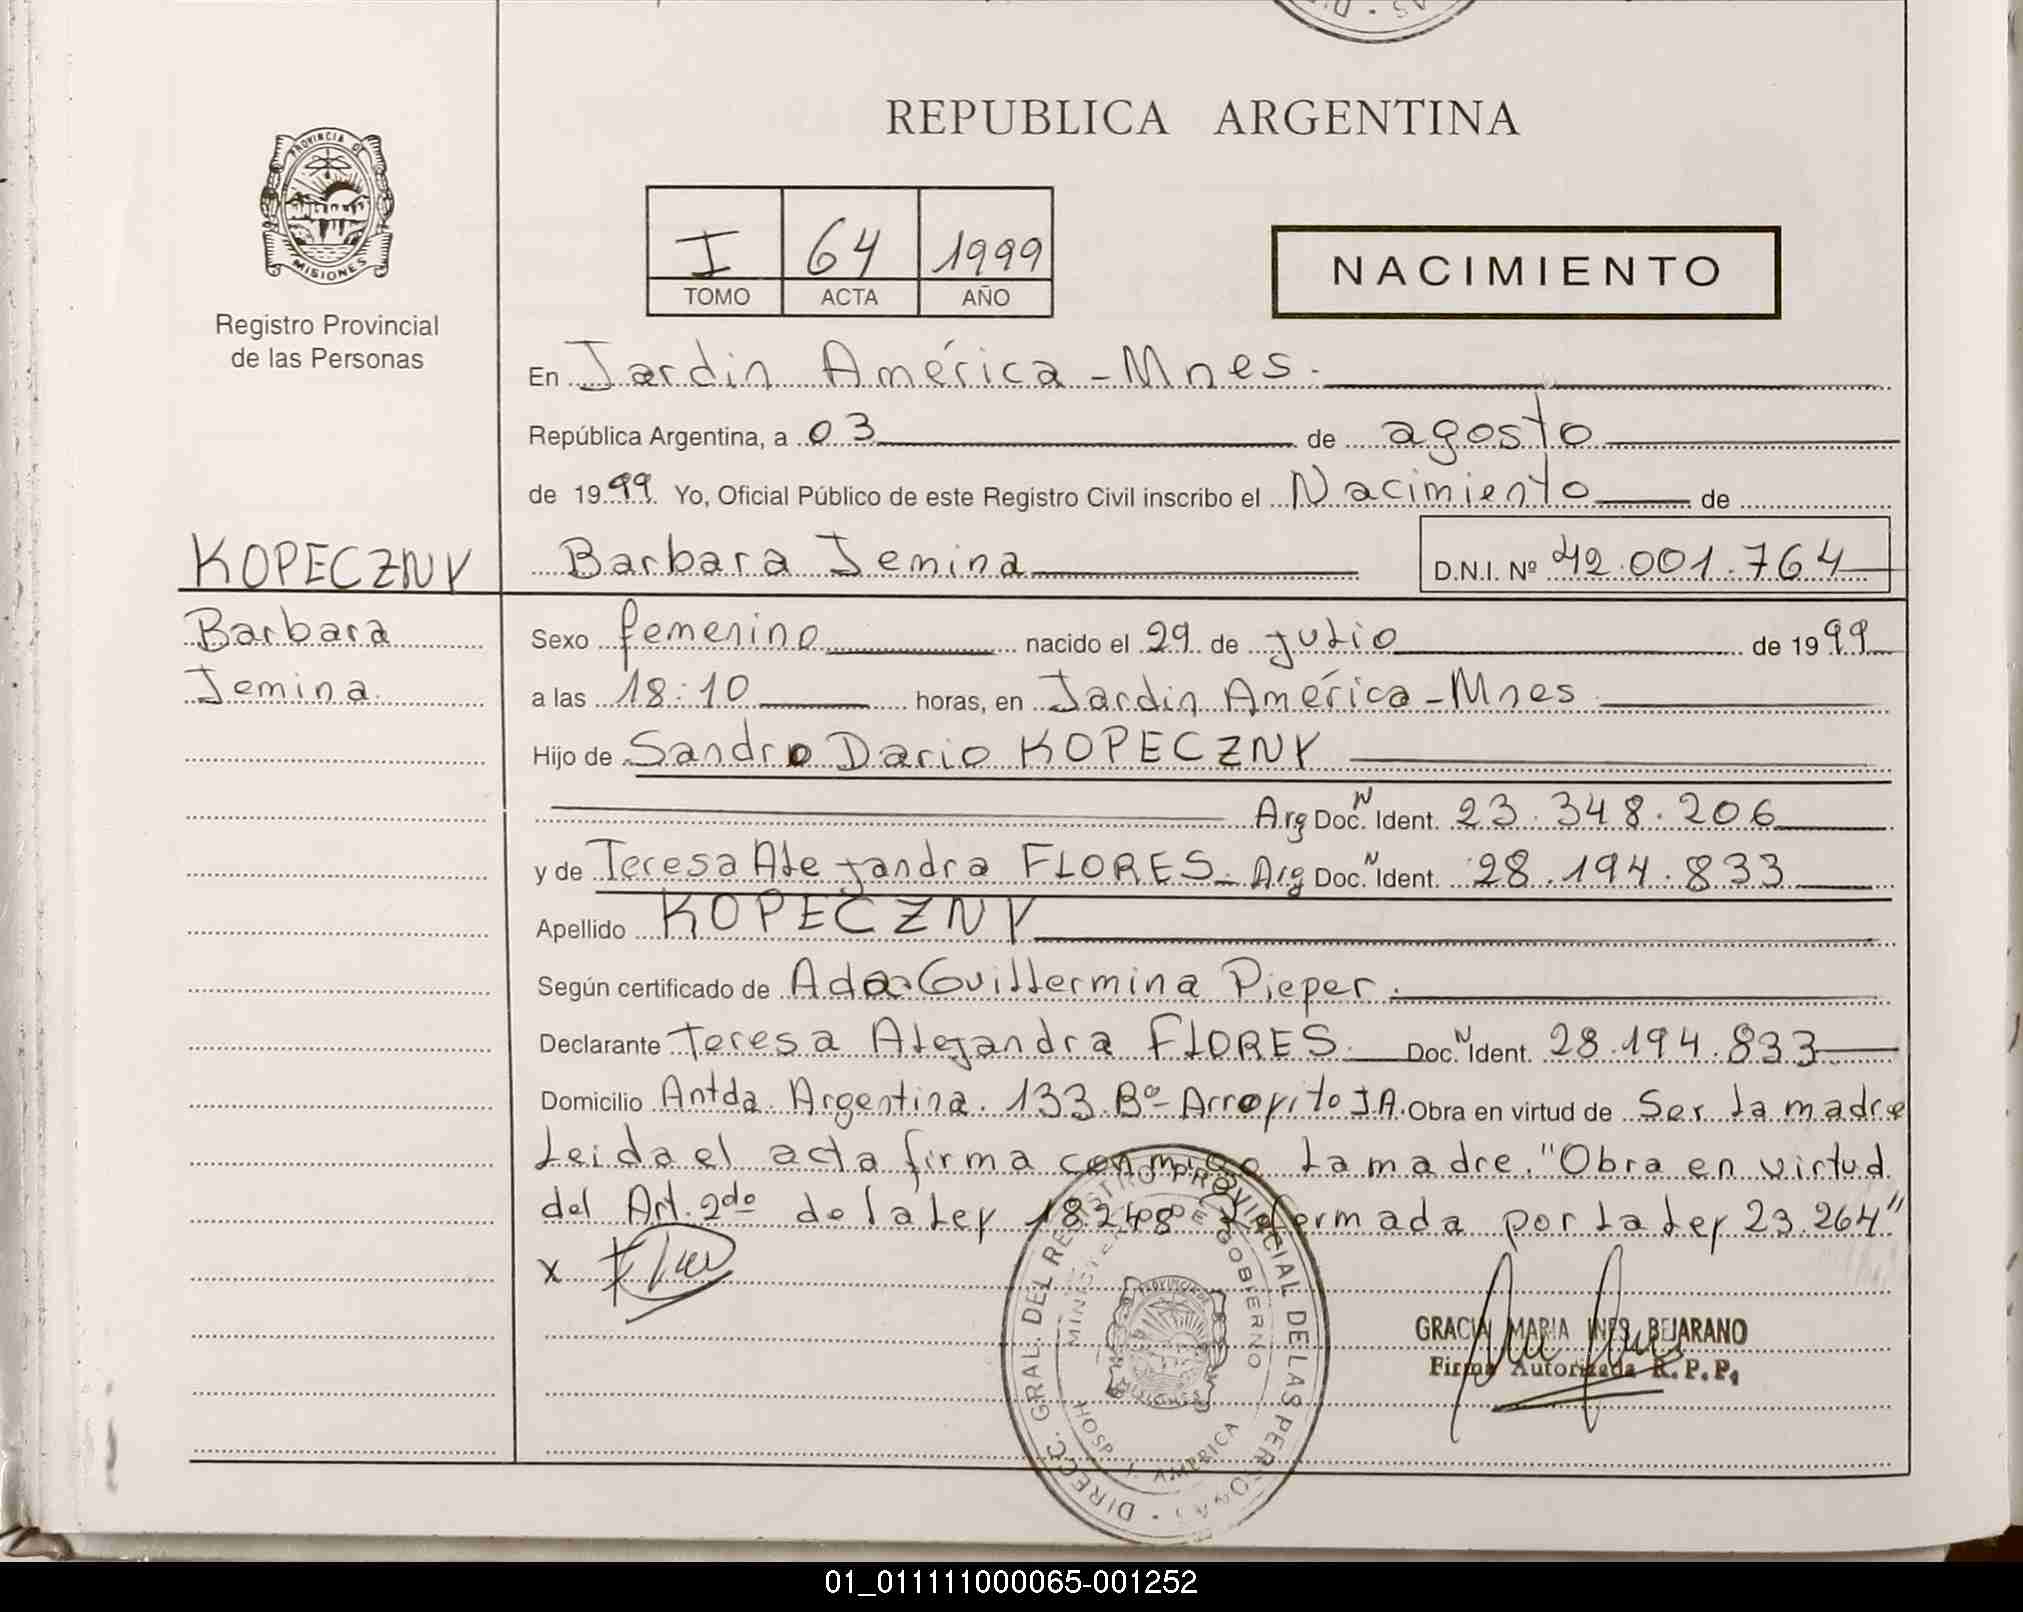 REPUBLICA ARGENTINA
PROVINCIA DE
MISIONES
Registro Provincial
de las Personas
I 64 1999
TOMO ACTA AÑO
NACIMIENTO
En Jardin América - Mnes.
República Argentina, a 03 de agosto
de 1999 Yo, Oficial Público de este Registro Civil inscribo el Nacimiento de
KOPECZNY
Barbara Jemina D.N.I. Nº 42.001.764
Barbara
Jemina
Sexo femenino nacido el 29 de julio de 1999
a las 18:10 horas, en Jardin América - Mnes
Hijo de Sandro Dario KOPECZNY
Arg Doc. N Ident. 23.348.206
y de Teresa Alejandra FLORES - Arg Doc. N Ident. 28.194.833
Apellido KOPECZNY
Según certificado de Ada Guillermina Pieper.
Declarante Teresa Alejandra FLORES. Doc. N Ident. 28.194.833
Domicilio Antda. Argentina. 133 Bº- Arroyito J A. Obra en virtud de Ser la madre
Leida el acta firma conmigo la madre. "Obra en virtud
del Art. 2do de la Ley 18.248 reformada por la Ley 23.264"
x
DIRECC. GRAL. DEL REGISTRO PROVINCIAL DE LAS PERSONAS
MINISTERIO DE GOBIERNO
PROVINCIA DE
MISIONES
HOSP. J. AMERICA
GRACIA MARIA INES BEJARANO
Firma Autorizada R. P. P.
01_011111000065-001252